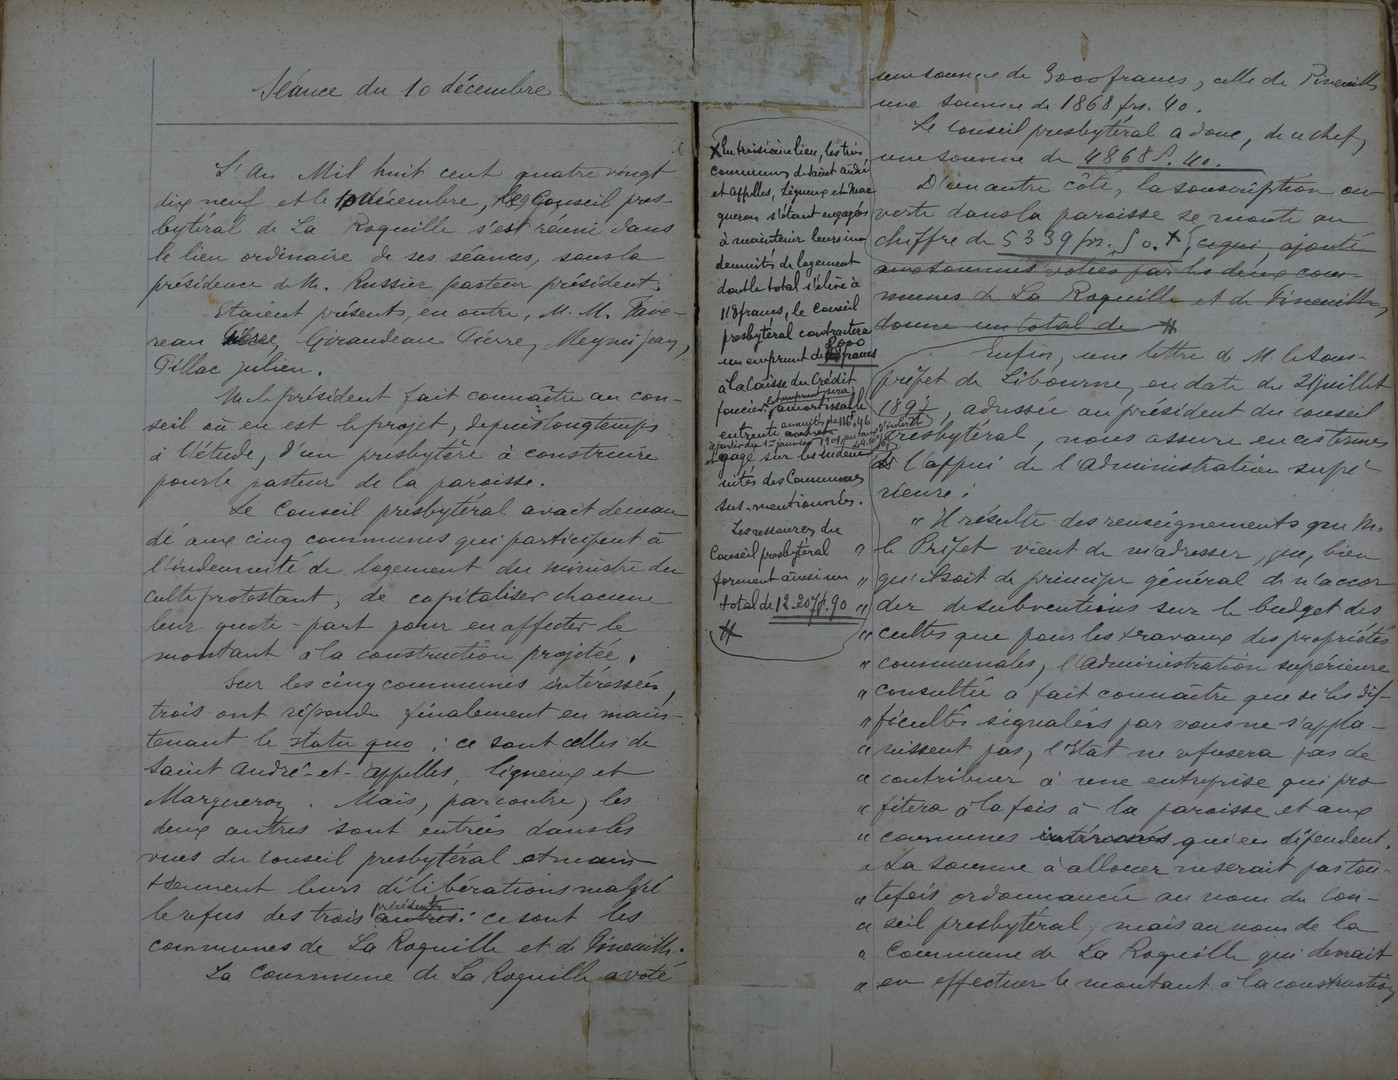 Séance du 10 décembre
L'An Mil huit cent quatre vingt
dix neuf et le 10 décembre, le Conseil pres-
bytéral de La Roquille s'est réuni dans
le lieu ordinaire de ses séances, sous la
présidence de M. Russier pasteur président.
Etaient présents, en outre, M. M. Fave-
reau Girandeau Pierre, Meynijean,
Pillac julien.
M. le président fait connaître au con-
seil où en est le projet, depuis longtemps
à l'étude, d'un presbytère à construire
pour le pasteur de la paroisse.
Le Conseil presbytéral avait deman
dé aux cinq communes qui participent à
l'indemnité de logement du ministre du
culte protestant, de capitaliser chacune
leur quote-part pour en affecter le
montant à la construction projetée.
Sur les cinq communes intéressées,
trois ont répondu finalement en main-
tenant le statu quo ; ce sont celles de
Saint André-et-Appelles, Ligueux et
Margueron. Mais, par contre, les
deux autres sont entrées dans les
vues du conseil presbytéral et main
tiennent leurs délibérations malgré
le refus des trois autres précédentes : ce sont les
communes de La Roquille et de Pineuilh.
La Commune de La Roquille a voté
une somme de 3000 francs, celle de Pineuilh
une somme de 1868 frs. 40.
Le Conseil presbytéral a donc, de ce chef,
une somme de 4868 f. 40.
D'un autre côté, la souscription ou-
verte dans la paroisse se monte au
chiffre de 5339 frs. 50. X ce qui, ajouté
aux sommes votées par les deux com-
munes de La Roquille et de Pineuilh,
donne un total de #
X En troisième lieu, les trois
communes de Saint André
et Appelles, Ligueux et Mar
gueron s'étant engagées
à maintenir leurs in
demnités de logement
dont le total s'élève à
118 francs, le conseil
presbytéral contractera
un emprunt de 2000 francs
à la Caisse du Crédit
foncier, emprunt sera amortissable
en trente annuités de 116 f. 46
à partir du 1er janvier 1901 au taux d'intérêt
et gagé sur les indem
nités des Communes
sus-mentionnées.
Les ressources du
Conseil presbytéral
forment ainsi un
total de 12.207 f. 90
#
Enfin, une lettre de M. le Sous-
préfet de Libourne, en date du 21 juillet
1897, adressée au président du conseil
presbytéral, nous assure en ces termes
de l'appui de l'Administration supé-
rieure :
" Il résulte des renseignements que M.
" le Préfet vient de m'adresser, que, bien
" qu'il soit de principe général de n'accor
" der de subventions sur le budget des
" cultes que pour les travaux des propriétés
" communales, l'Administration supérieure
" consultée a fait connaître que si les dif-
" ficultés signalées par vous ne s'appla-
" nissent pas, l'Etat ne refusera pas de
" contribuer à une entreprise qui pro
" fitera à la fois à la paroisse et aux
" communes intéressées qui en dépendent.
" La somme à allouer ne serait pas tou-
" tefois ordonnancée au nom du con-
" seil presbytéral, mais au nom de la
" Commune de La Roquille qui devrait
" en effectuer le montant à la construction,